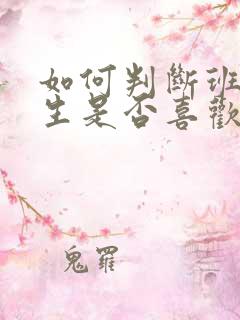 如何判斷班
生是否喜歡
鬼羅